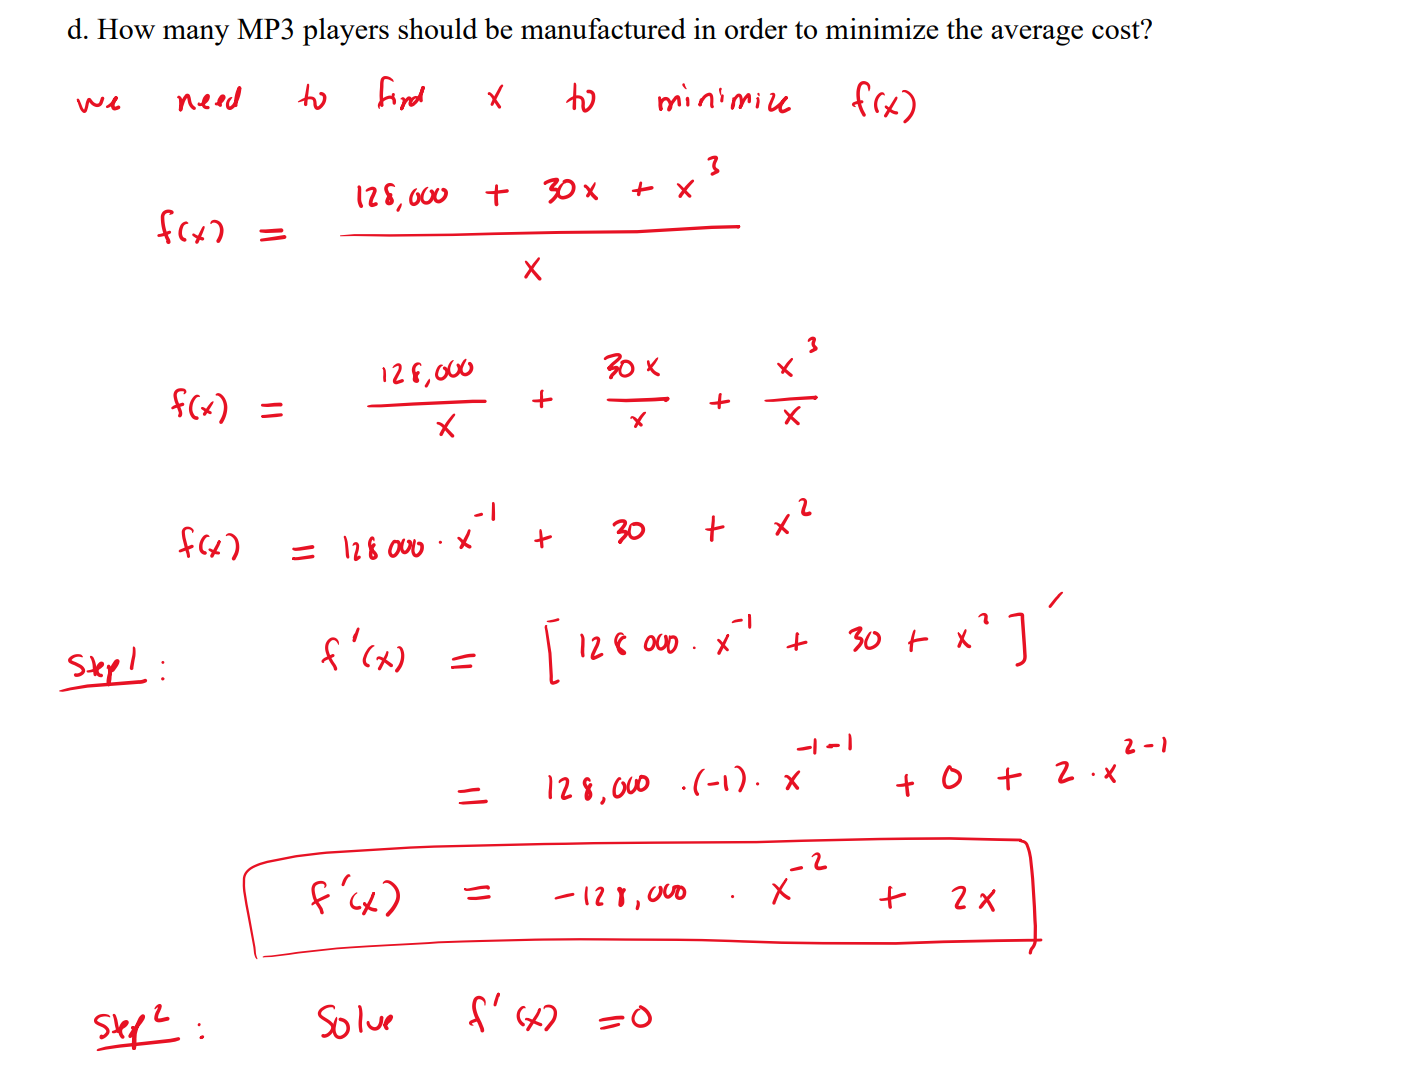 d. How many MP3 players should be manufactured in order to minimize the average cost?
we need to find x to minimize f(x)
f(x) = (128,000 + 30x + x^3) / x
f(x) = 128,000/x + 30x/x + x^3/x
f(x) = 128 000 · x^-1 + 30 + x^2
Step 1: f'(x) = [128 000 · x^-1 + 30 + x^2]'
= 128,000 · (-1) · x^-1-1 + 0 + 2 · x^2-1
f'(x) = -128,000 · x^-2 + 2x
Step 2: Solve f'(x) = 0